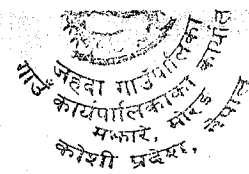 जहदा गाउँपालिका
गाउँ कार्यपालिकाको कार्यालय
मझारे, मोरङ
कोशी प्रदेश, नेपाल